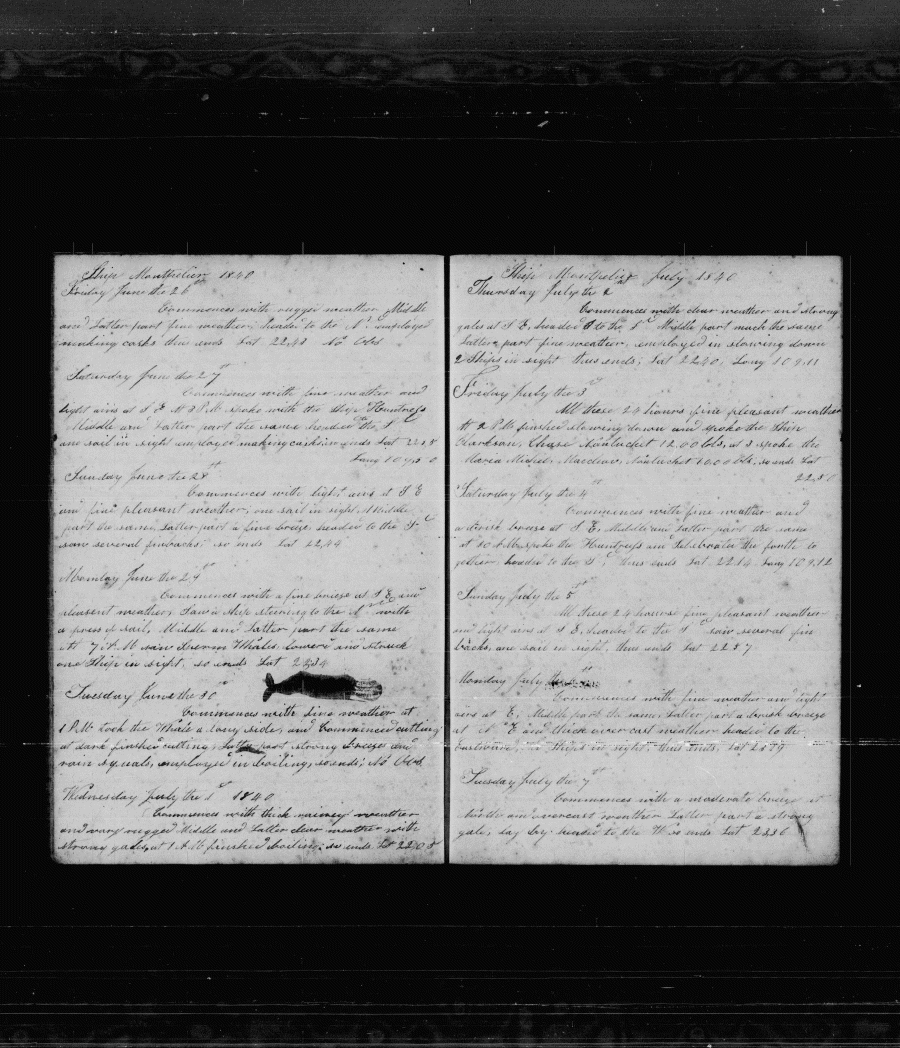 Ship Montpelier 1840
Friday June the 26th
Commences with rugged weather Middle
and Latter part fine weather, headed to the N employed
making casks thus ends Lat 22,43 No Obs
Saturday June the 27
Commences with fine weather and
light airs at S E at 3 P.M. spoke with the Ship Huntress
Middle and Latter part the same headed the S
one sail in sight employed making casks ends Lat
Long 109,50
Sunday June the 28th
Commences with light airs at S E
and fine pleasant weather, one sail in sight Middle
part the same, Latter part a fine breeze headed to the S
saw several finbacks, so ends Lat 22,44
Monday June the 29th
Commences with a fine breeze at S E and
pleasant weather, Saw a Ship steering to the N with
a press of sail, Middle and Latter part the same
At 7 A.M saw Sperm Whales lowered and struck
one Ship in sight, so ends Lat
Tuesday June the 30
Commences with fine weather at
1 P.M took the Whale a long side, and Commenced cutting
at dark finished cutting, Latter part strong breezes and
rain squals, employed in boiling, so ends; No Obs
Wednesday July the 1st 1840
Commences with thick rainey weather
and very rugged Middle and Latter clear weather with
strong gales, at 1 A.M finished boiling; so ends Lat 22,05
Ship Montpelier July 1840
Thursday July the 2
Commences with clear weather and strong
gales at S E, headed to the S Middle part much the same
Latter part fine weather, employed in stowing down
2 Ships in sight thus ends, Lat 22,40, Long 109,11
Friday July the 3rd
All these 24 hours fine pleasant weather
At 2 P.M finished stowing down and spoke the Ship
Clarkson, Chase Nantucket 1200 bbls, at 3 spoke the
Maria Nantucket 1000 bbls, so ends Lat
Saturday July the 4th
Commences with fine weather and
a brisk breeze at S E, Middle and Latter part the same
at 10 A.M. spoke the Huntress and Celebrated the fourth to
gether, headed to the S thus ends Lat 22,14 Long 109,12
Sunday July the 5th
All these 24 hours fine pleasant weather
and light airs at S E, headed to the S saw several fin
backs, one sail in sight, thus ends Lat 22,57
Monday July the
Commences with fine weather and light
airs at E, Middle part the same Latter part a brisk breeze
at N E and thick overcast weather headed to the
Eastward, no Ships in sight, thus ends, Lat
Tuesday July the 7th
Commences with a moderate breeze at
and overcast weather Latter part a strong
gale, lay by headed to the W so ends Lat